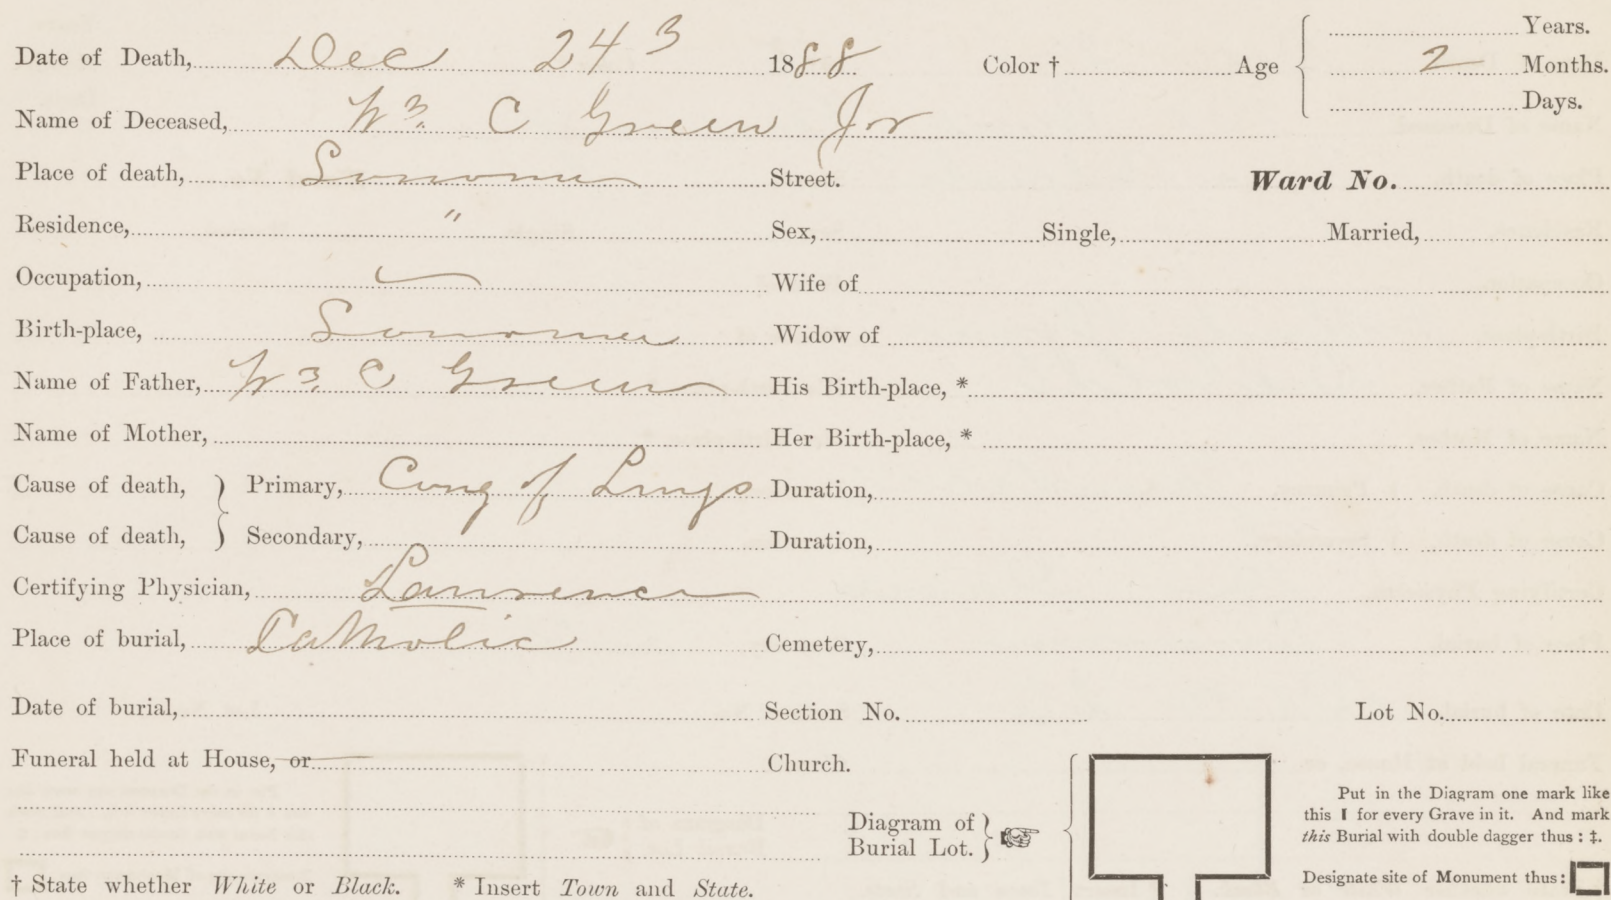 Date of Death, Dec 24 3 1888 Color † Age Years.
2 Months.
Days.
Name of Deceased, Wm. C Green Jr
Place of death, Sonoma Street. Ward No.
Residence, " Sex, Single, Married,
Occupation, Wife of
Birth-place, Sonoma Widow of
Name of Father, Wm C Green His Birth-place, *
Name of Mother, Her Birth-place, *
Cause of death, } Primary, Cong of Lungs Duration,
Cause of death, } Secondary, Duration,
Certifying Physician, Lawrence
Place of burial, Catholic Cemetery,
Date of burial, Section No. Lot No.
Funeral held at House, or Church.
Diagram of
Burial Lot. }
Put in the Diagram one mark like
this I for every Grave in it. And mark
this Burial with double dagger thus : ‡.
Designate site of Monument thus :
† State whether White or Black. * Insert Town and State.